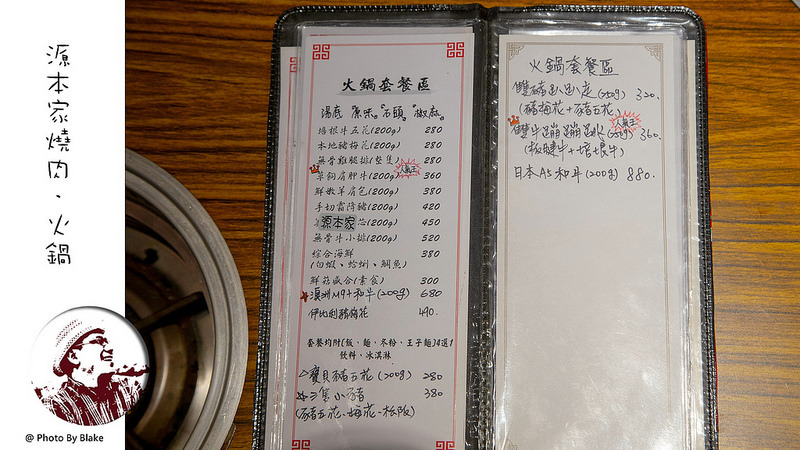 源本家燒肉·火鍋
@ Photo By Blake
火鍋套餐區
湯底 "原味""石頭""椒麻"
培根牛五花(200g) 250
本地豬梅花(200g) 250
無骨雞腿排(整隻) 250
草飼肩胛牛(200g) 人氣王 360
鮮嫩羊肩包(200g) 380
手切霜降豬(200g) 420
源本家 (200g) 450
無骨牛小排(200g) 520
綜合海鮮 380
(白蝦、蛤蜊、鯛魚)
鮮菇盛合(素食) 300
澳洲M9+和牛(200g) 680
伊比利豬梅花 490.
套餐均附(飯、麵、冬粉、王子麵)4選1
飲料、冰淇淋
寶貝豬五花(200g) 280
三隻小豬 380
(豬五花-梅花-松阪)
火鍋套餐區
雙豬趴趴走(250g) 320.
(豬梅花+豬五花)
雙牛蹦蹦跳(250g) 人氣王 360.
(板腱牛+培根牛)
日本A5和牛(200g) 880.